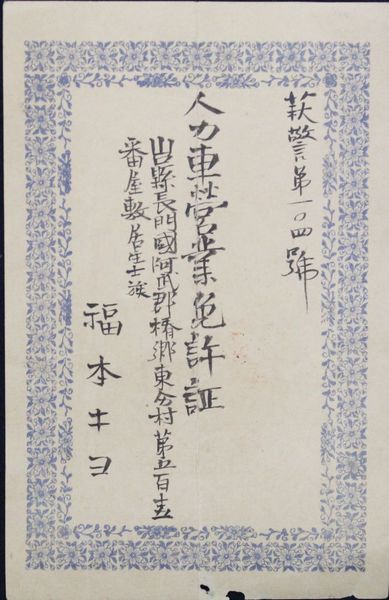 萩警第一〇四號
人力車営業免許証
山口縣長門國阿武郡椿郷東分村第五百壱
番屋敷居住士族
福本キヨ